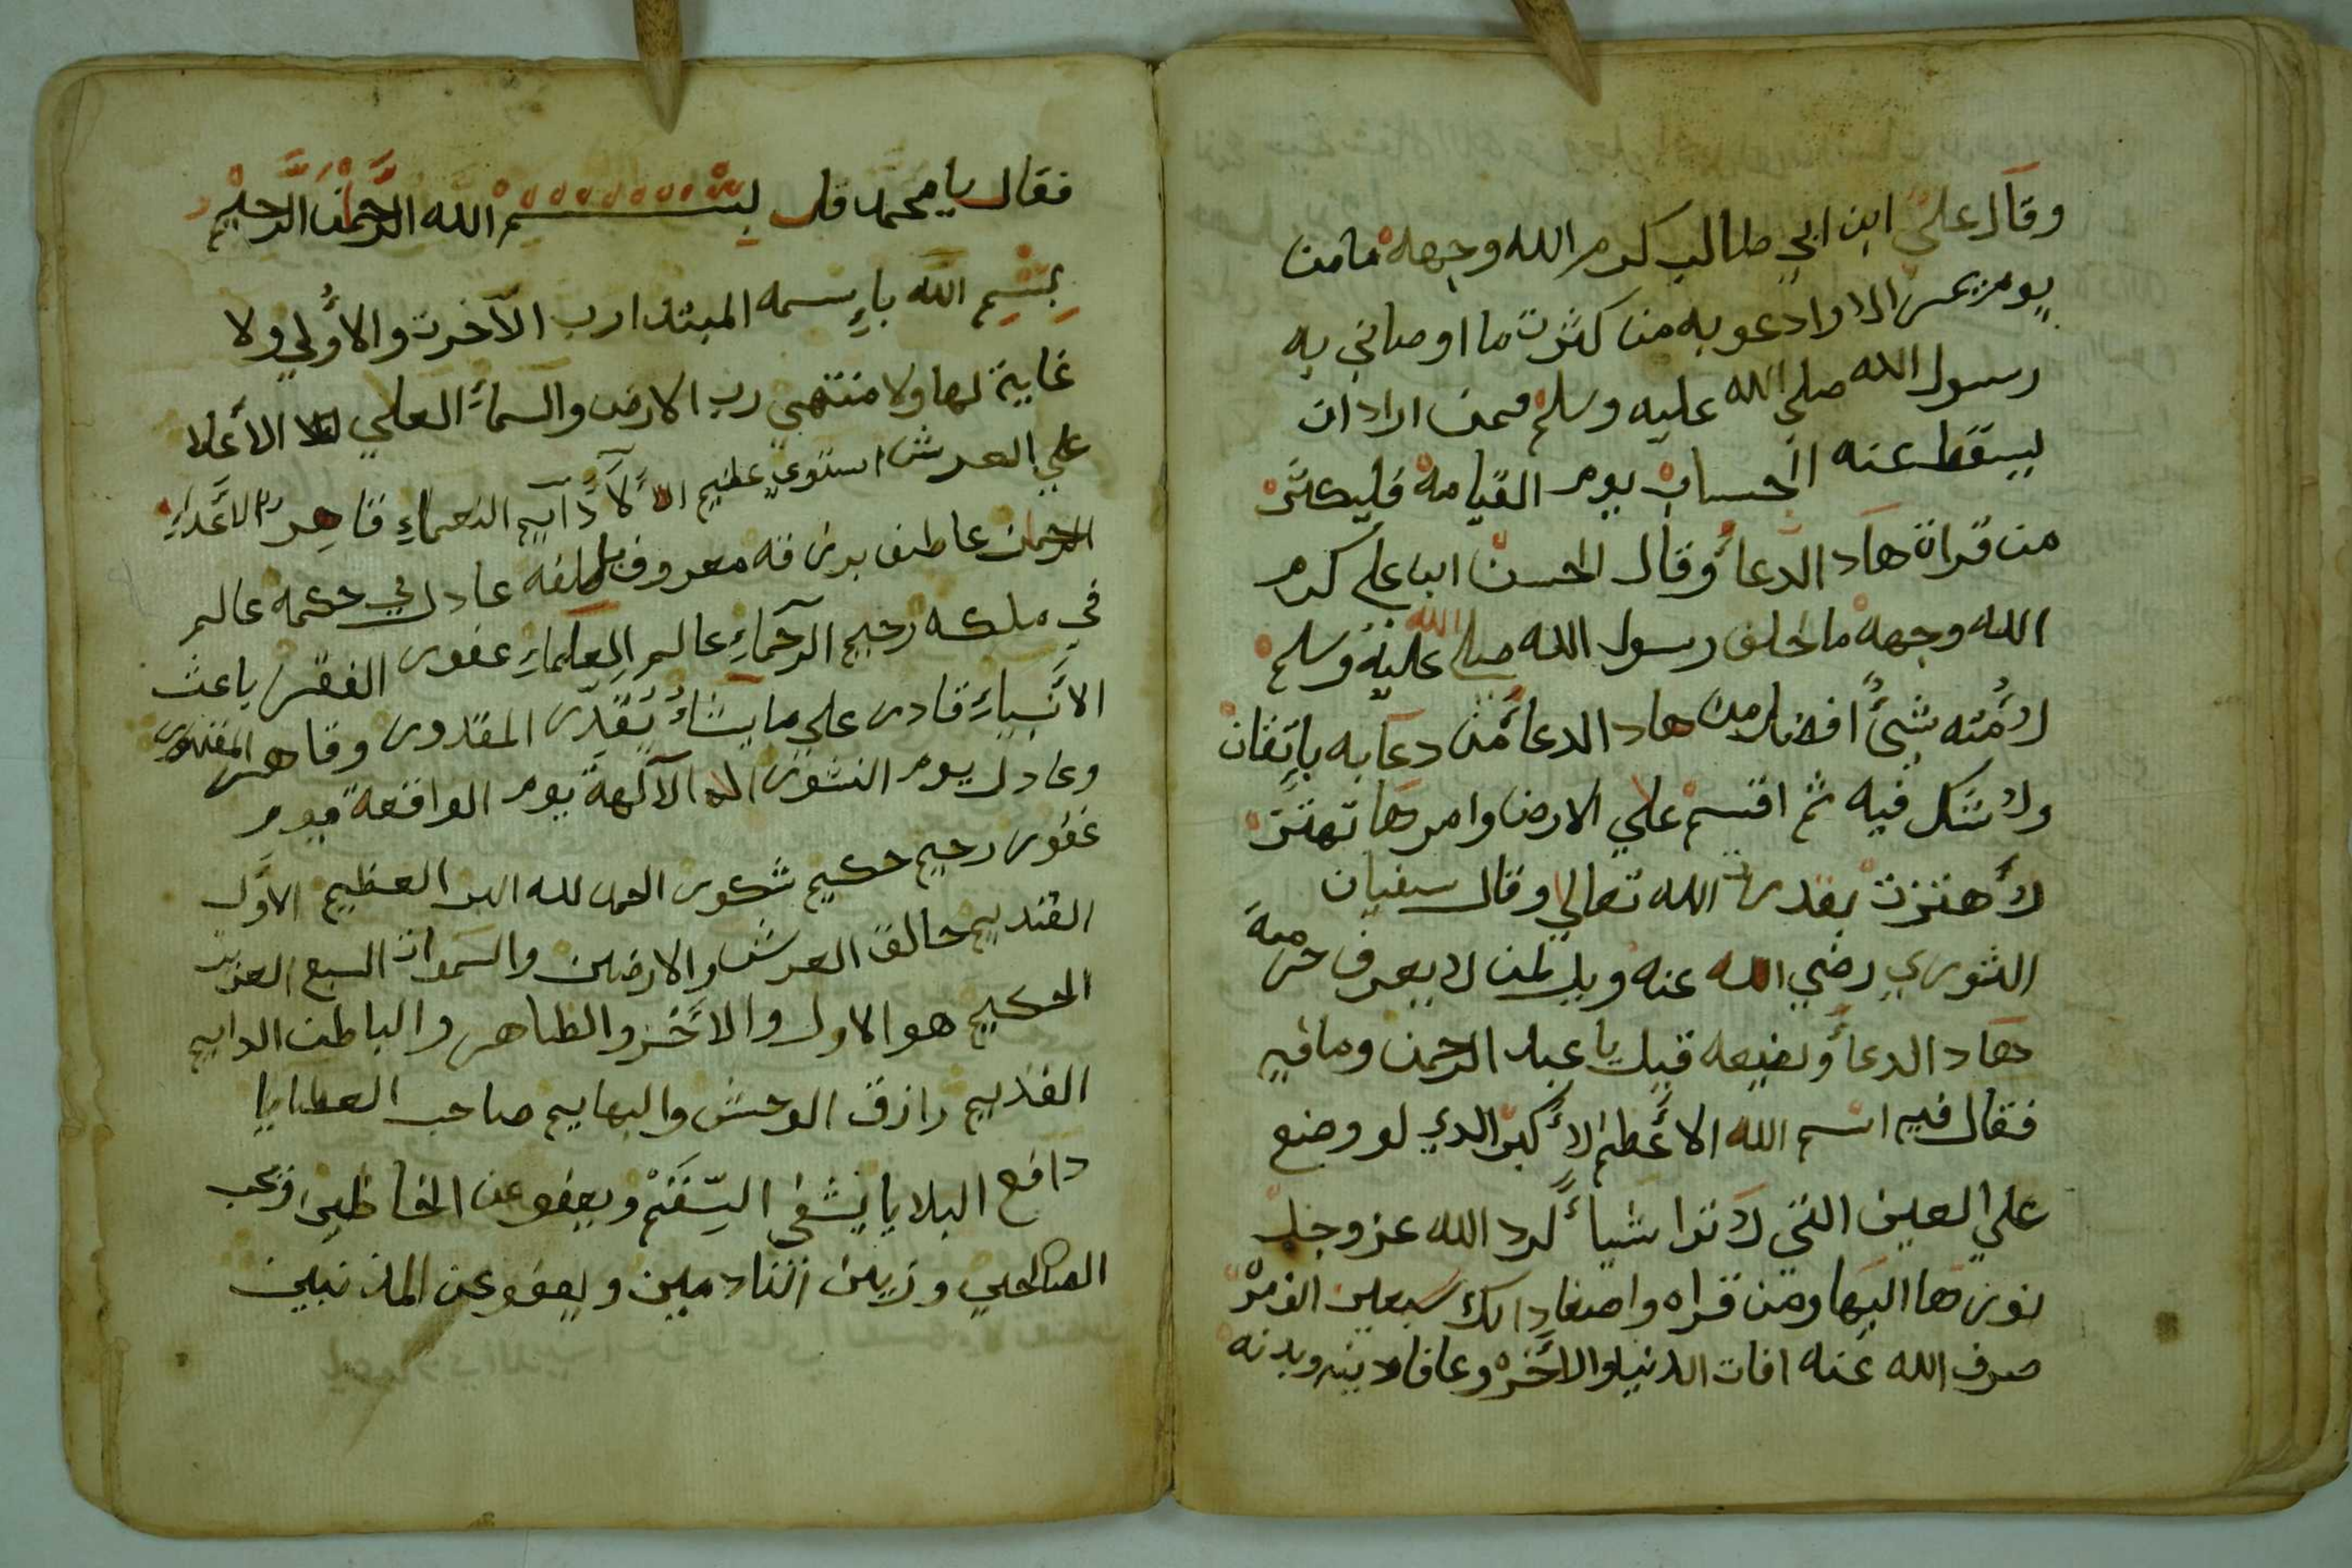 وقال علي ابن ابي طالب كرم الله وجهه ما من
يوم يمر الا وادعو به من كثرت ما اوصاني به
رسول الله صلي الله عليه وسلم فمن اراد ان
يسقط عنه الحساب يوم القيامة فليكثر
من قراة هاد الدعاء وقال الحسن ابن علي كرم
الله وجهه ما خلف رسول الله صلي الله عليه وسلم
لأمته شئ افضل من هاد الدعاء من دعا به بإتقان
ولا شكل فيه ثم اقسم علي الارض وامرها تهتز
لأهتزت بقدرت الله تعالي وقال سفيان
الثوري رضي الله عنه ويل لمن لا يعرف حرمة
هاد الدعاء قيل يا عبد الرحمن وما فيه
فقال فيه اسم الله الأعظم الأكبر الدي لو وضع
علي العين التي لا ترا شيأ لرد الله عز وجل
نورها اليها ومن قراه سبعين الف مر
صرف الله عنه افات الدنيا والأخره وعافا دينه وبدنه
فقال يا محمد قل بسم الله الرحمن الرحيم
بسم الله بإسمه المبتدا رب الآخرت والأولي ولا
غاية لها ولا منتهي رب الارض والسماء العلي الأعلا
علي العرش استوي عظيم الألآء دآيم النعماء قاهر الأعداء
الرحمان عاطف برزقه معروف بلطفه عادل في حكمه عالم
في ملكه رحيم الرحماء عالم العلماء غفور الفقر باعث
الأنبياء قادر علي ما يشاء يقدر المقدور وقاهر
وعادل يوم النشور اله الآلهة يوم الواقعة يوم
غفور رحيم حكيم شكور الحمد لله العظيم الأول
القديم خالق العرش والارضين والسموات السبع العزيز
الحكيم هو الاول والأخر والظاهر والباطن الدايم
القديم رازق الوحش والبهايم صاحب العطايا
دافع البلايا يشفي السقم ويعفو عن الخاطين
الصالحين وزين النادمين ويعفو عن المذنبين